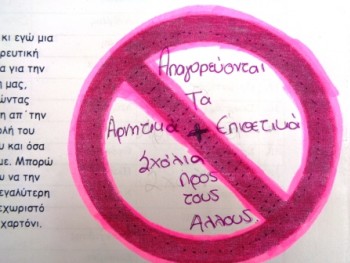 κι εγώ μια
ρευτική
α για την
μας,
ώντας
η απ΄την
ολή του
υ και όσα
με. Μπορώ
υ να την
εγαλύτερη
εχωριστό
χαρτόνι.
Απαγορεύονται
Τα
Αρνητικά + Επιθετικά
Σχόλια
Προς
τους
Άλλους.